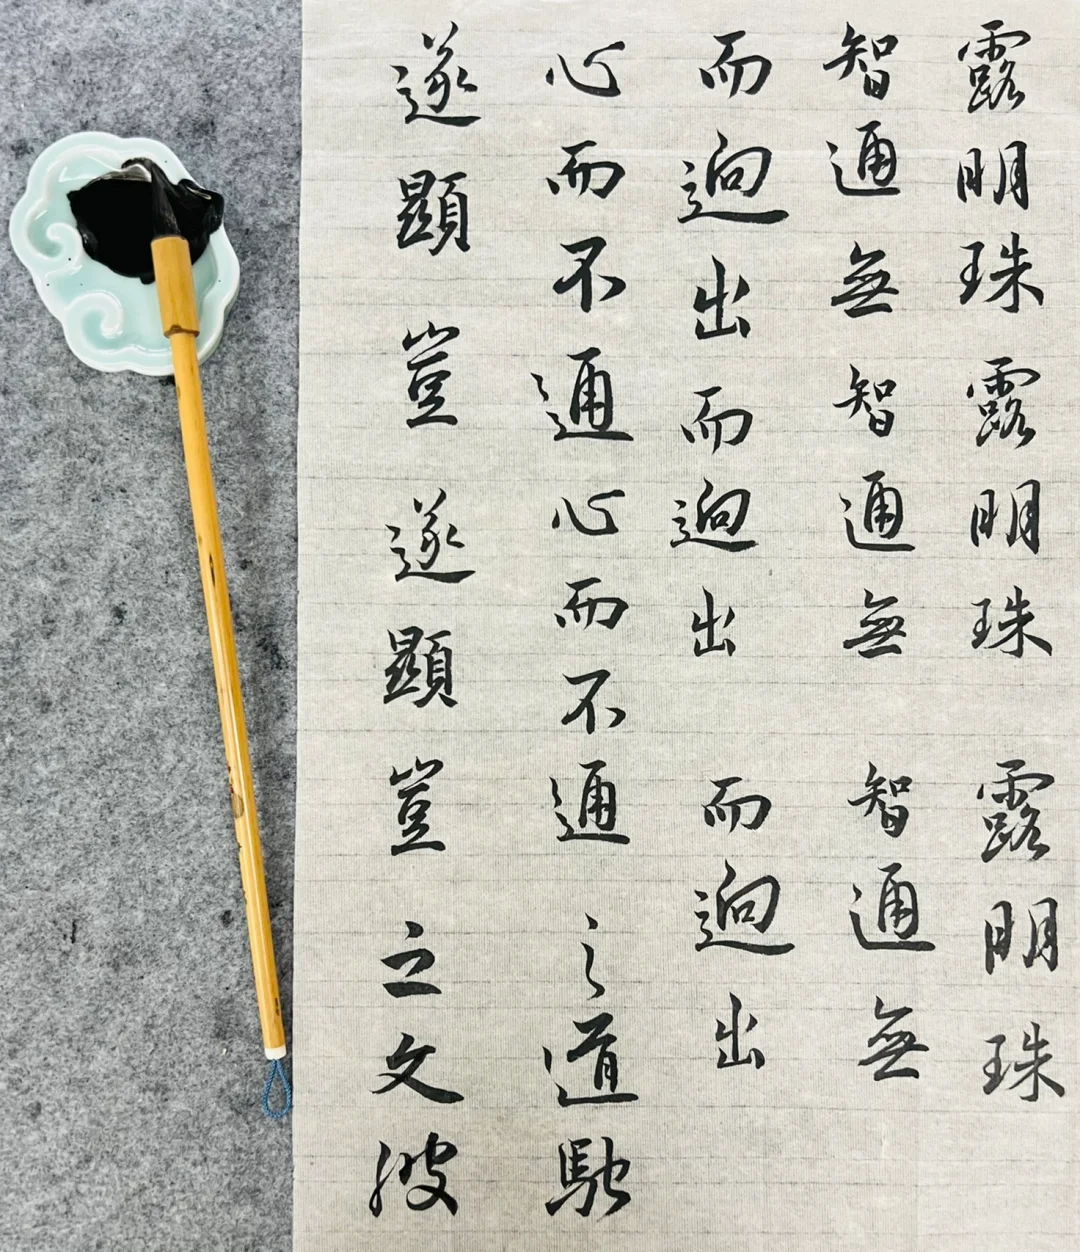 露明珠露明珠露明珠
智通無智通無智通無
而迥出而迥出而迥出
心而不通心而不通之道馳
遂顯豈遂顯豈立文彼